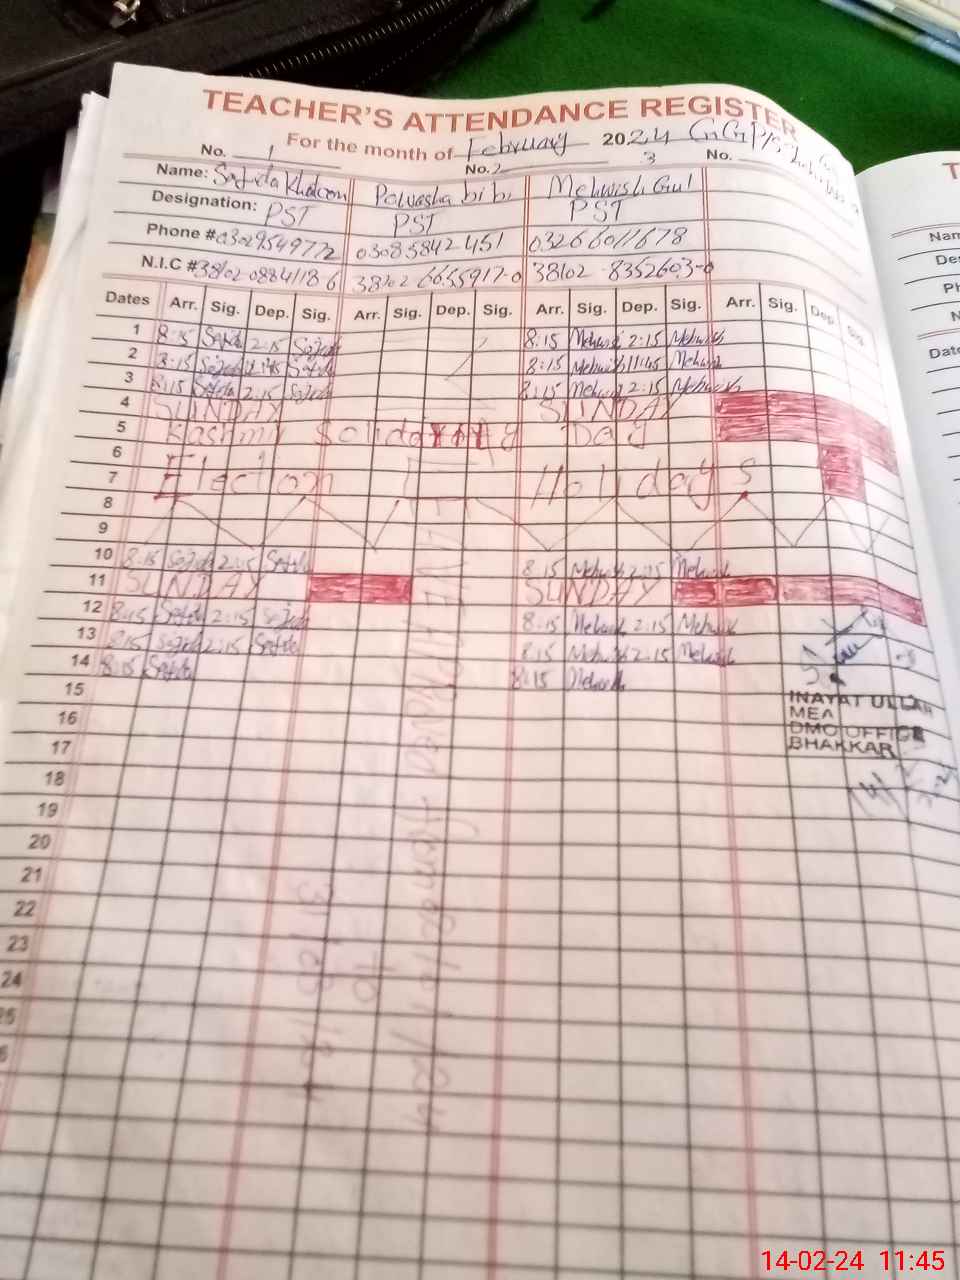 TEACHER'S ATTENDANCE REGISTER
For the month of February 2024 GGPS
No. 1 No. 2 3 No.
Name: Sajida Khatoon Pawasha bibi Mehwish Gul
Designation: PST PST PST
Phone # 03029549772 03085842451 03266011678
N.I.C # 38102 0884118 6 38102 6655917-0 38102-8352603-0
Dates Arr. Sig. Dep. Sig. Arr. Sig. Dep. Sig. Arr. Sig. Dep. Sig. Arr. Sig. Dep. Sig.
1 8:15 Sajida 2:15 Sajida 8:15 Mehwish 2:15 Mehwish
2 8:15 Sajida 11:45 Sajida 8:15 Mehwish 11:45 Mehwish
3 8:15 Sajida 2:15 Sajida 8:15 Mehwish 2:15 Mehwish
4 SUNDAY SUNDAY
5 Kashmir Solidarity Day
6
7 Election Holidays
8
9
10 8:15 Sajida 2:15 Sajida 8:15 Mehwish 2:15 Mehwish
11 SUNDAY SUNDAY
12 8:15 Sajida 2:15 Sajida 8:15 Mehwish 2:15 Mehwish
13 8:15 Sajida 2:15 Sajida 8:15 Mehwish 2:15 Mehwish
14 8:15 Sajida 8:15 Mehwish
15
INAYAT ULLAH
16
MEA
DMO OFFICE
17
BHAKKAR
18
19
20
21
22
23
24
25
6
T
Nam
De
Ph
N
Date
14-02-24 11:45